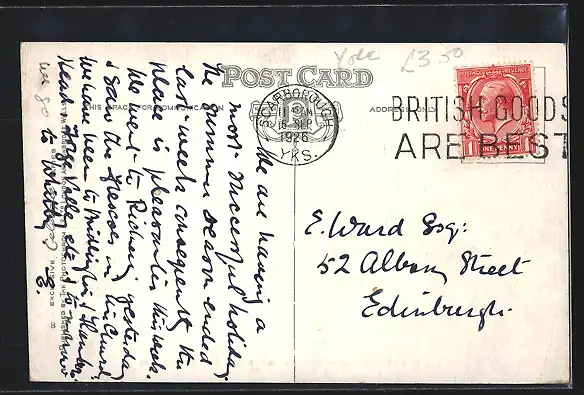 Yole
£3.50
POST CARD
THIS SPACE FOR COMMUNICATION
ADDRESS ONLY
SCARBOROUGH
11 15 AM
15 SEP
1926
YKS.
BRITISH GOODS
ARE BEST
POSTAGE REVENUE
1 ONE PENNY 1
We are having a
most successful holiday.
The summer season ended
last week consequently the
place is pleasanter this week.
We went to yesterday
& saw the frescoes in church,
We have been to &
Head, etc &
we go to Whitby. E.
E. Ward Esq:
52 Albany Street
Edinburgh.